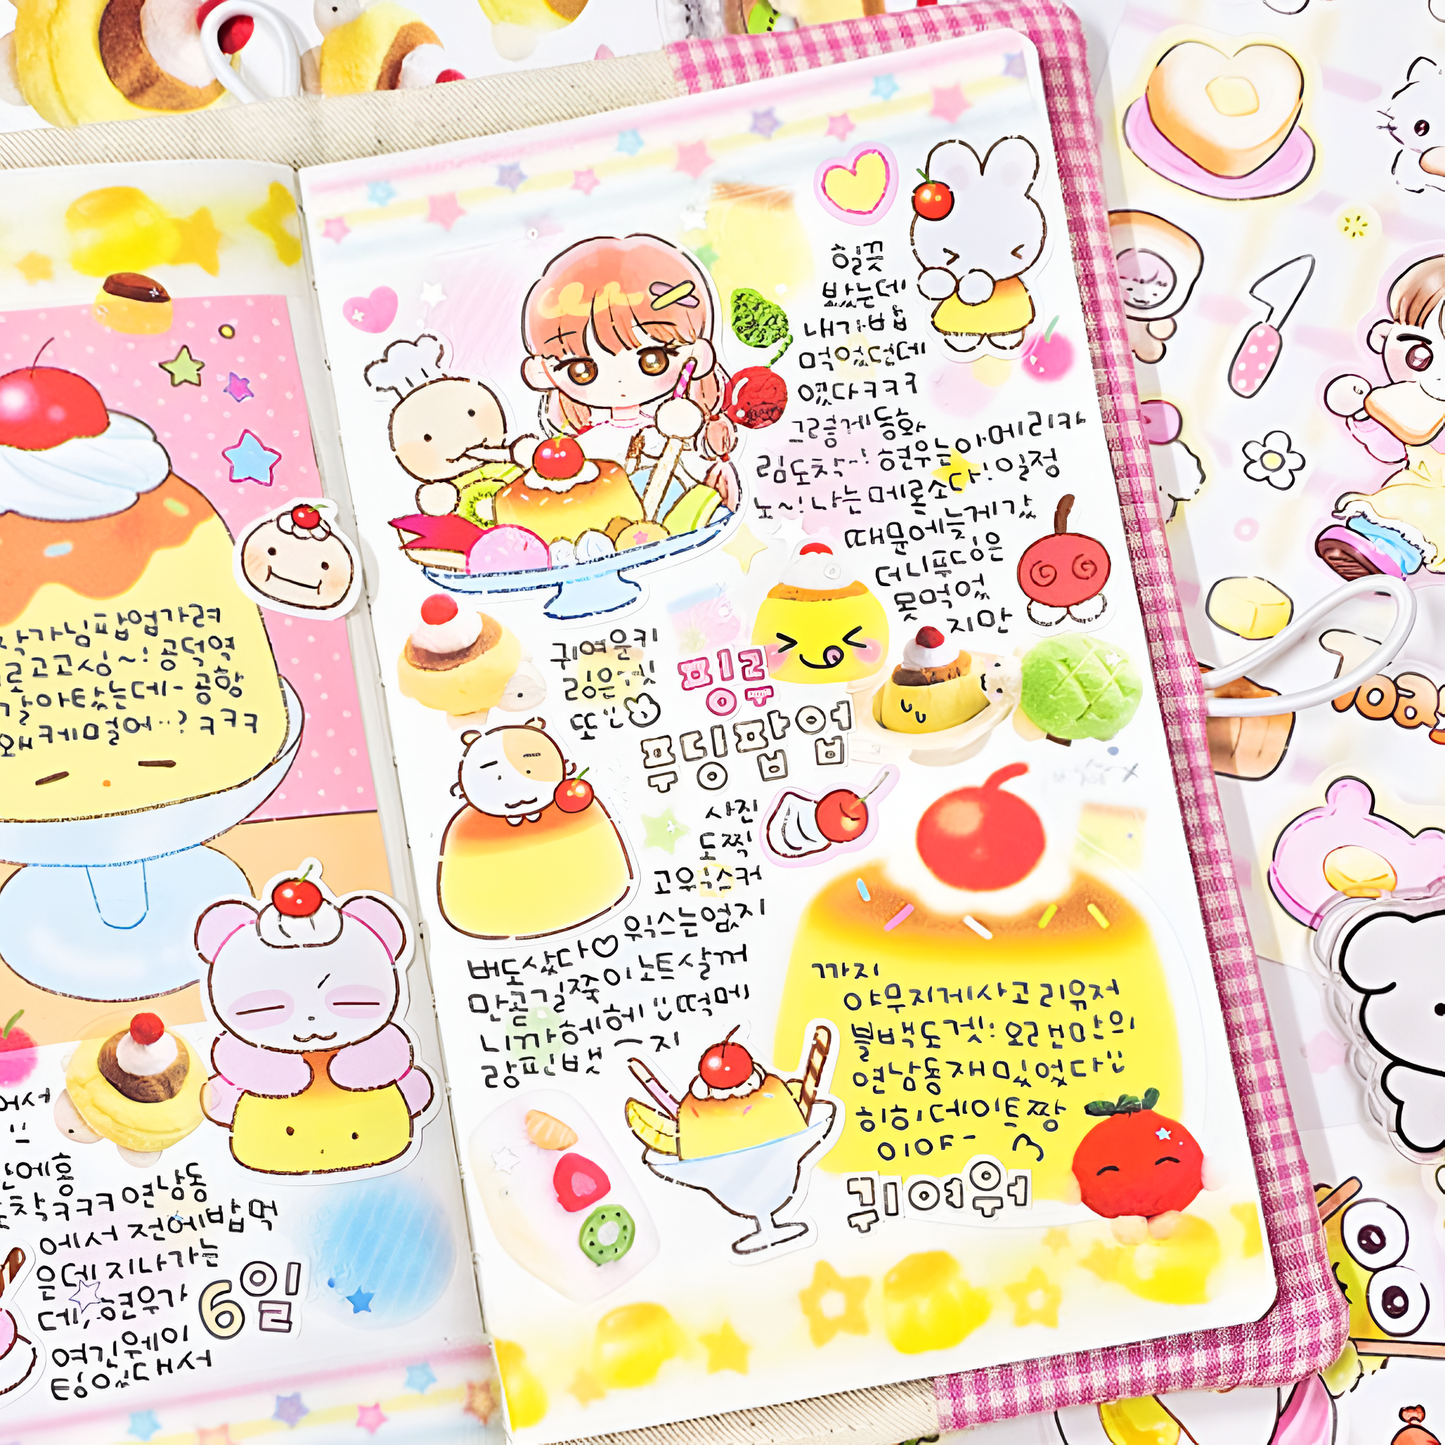 작가님팝업가려
고고싱~! 공덕역
살아탔는데~ 공항
왜케미멀어..? ㅋㅋㅋ
어서
에홍
도착ㅋㅋㅋ 연남동
에서 전에밥먹
은데지나가는
데, 현우가
여긴웨이
팅있대서
6일
힐끗
봤는데
내가밥
먹었던데
였다ㅋㅋㅋ
그렇게동화
림도착~! 현우는아메리카
노~! 나는메론소다! 일정
때문에늦게갔
더니푸딩은
못먹었
지만
귀여운키
링은찢
또
핑루
푸딩팝업
사진
도찍
고위스커
위스는엽지
버도샀다♡
만곧길쭉이노트살꺼
니까헤헤 떡메
랑핀뱃 지
까지
야무지게사고리유저
블백도겟! 오랜만의
연남동재미있었다
히히데이트짱
이야~
귀여워
Toa